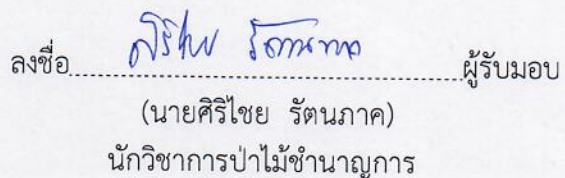 ลงชื่อ ศิริไชย รัตนภาค ผู้รับมอบ
(นายศิริไชย รัตนภาค)
นักวิชาการป่าไม้ชำนาญการ